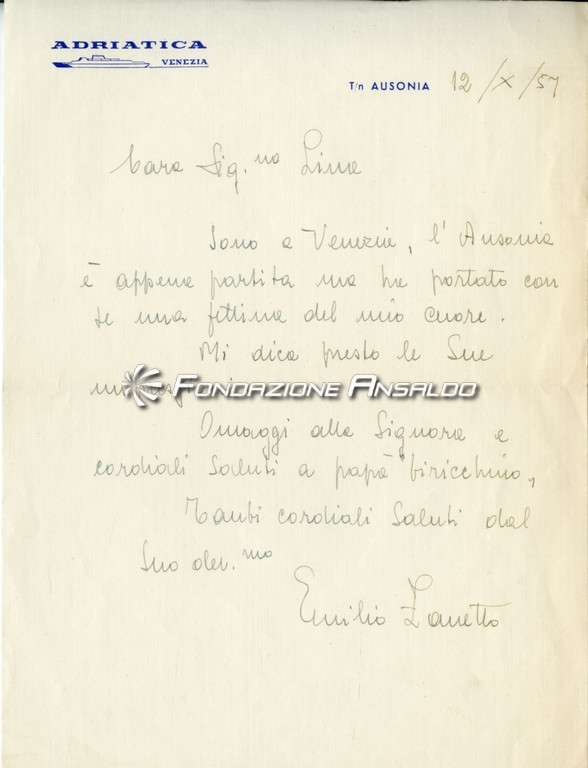 ADRIATICA
VENEZIA
T/n AUSONIA 12/X/57
Cara Sig.na Lina
Sono a Venezia, l'Ausonia
è appena partita ma ha portato con
se una fettina del mio cuore.
Mi dica presto le Sue
FONDAZIONE ANSALDO
Omaggi alla Signora e
cordiali saluti a papà "biricchino„
Tanti cordiali saluti dal
Suo dev.mo
Emilio Zanetto